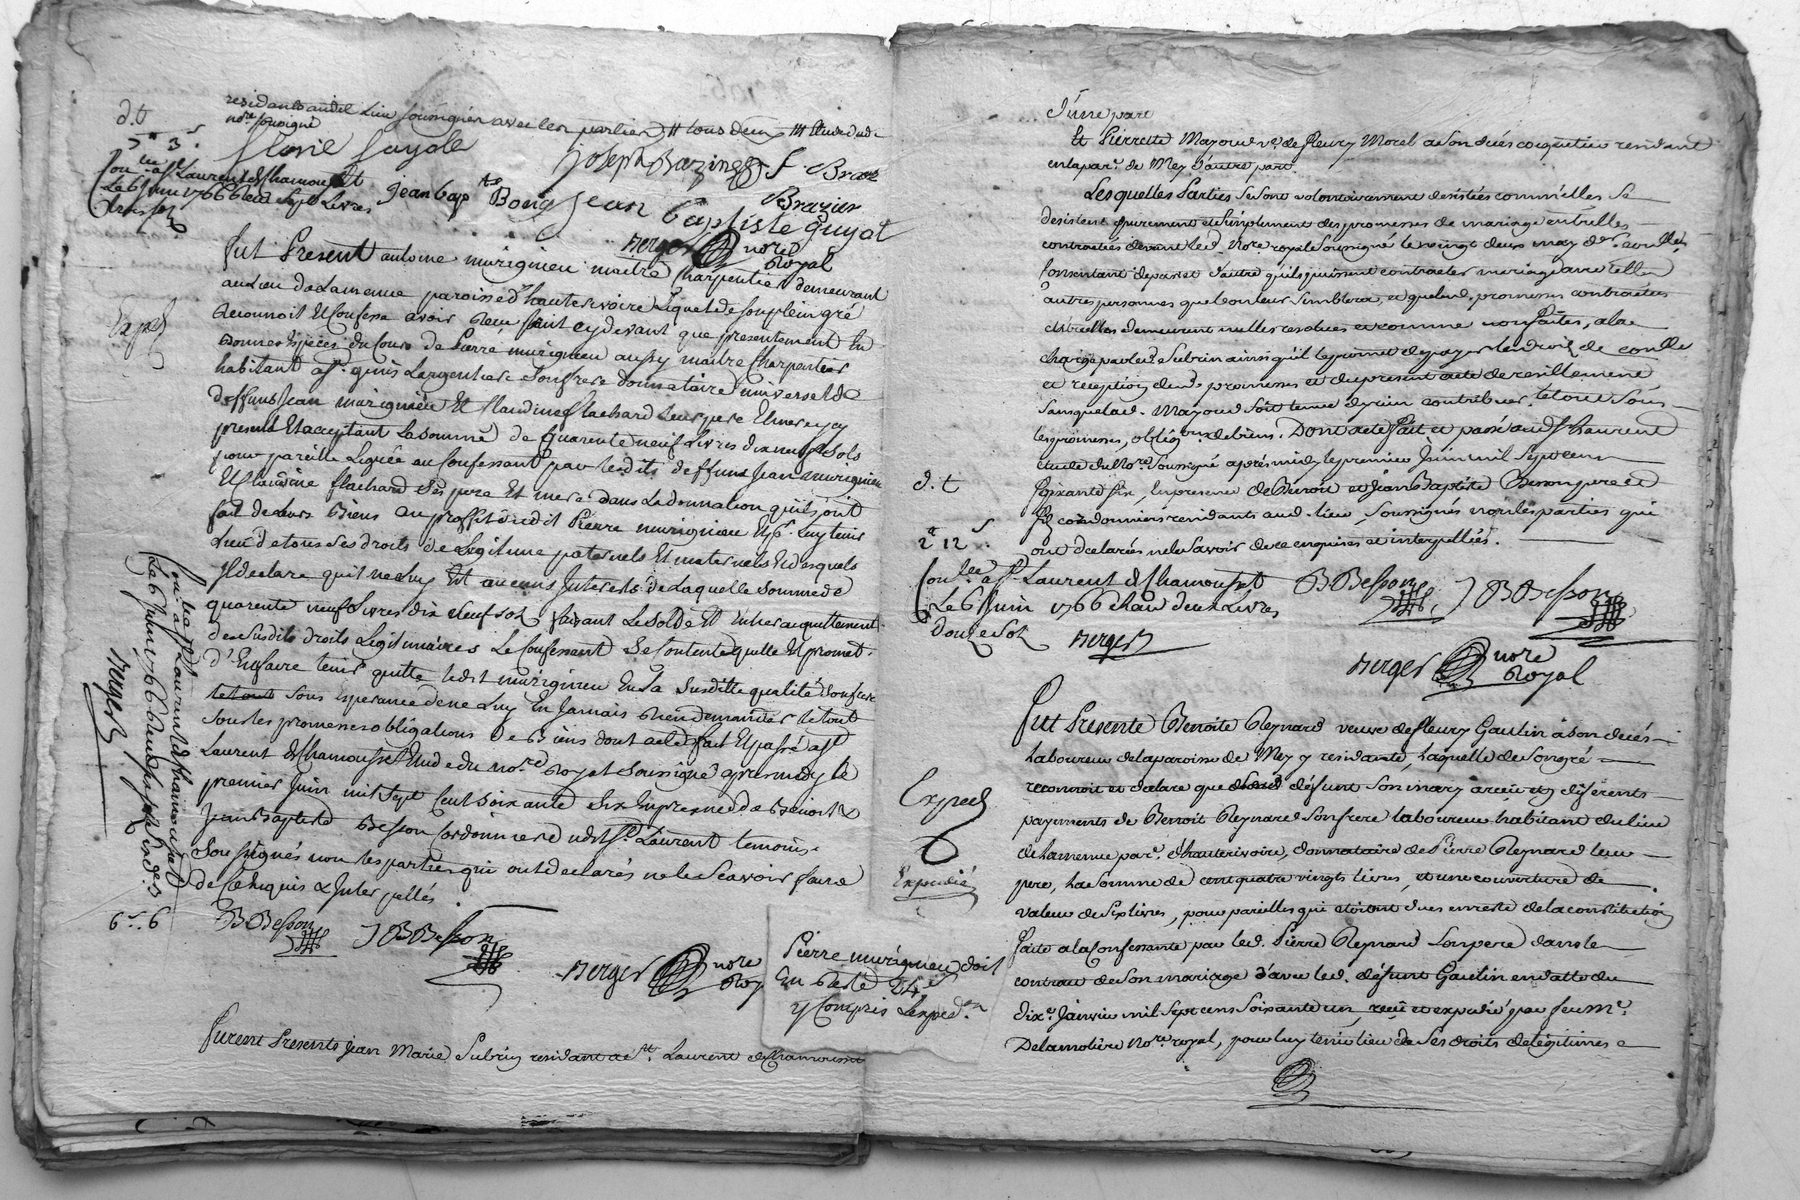 residants audit lieu soussignés avec les parties
nore soussigné
d.t
florie fayole
joseph Bazin
Jean bap te Bouig
Jean Baptiste guyot
Brazier
Berger nore Royal
Con. lée a St Laurent de Chamousset
Le 6 Juin 1766 Recu sept Livres
trois sols
fut Present antoine murigneu maitre Charpentier demeurant
au Lieu de Lamenue paroisse d'hauterivoire Lequel de son plein gré
Reconnoit Et Confesse avoir Recu tant cy devant que presentement En
bonnes Espèces du Cours de Pierre murigneu aussy maitre Charpentier
habitant a St. genis Largentiere Son frere donnataire universel de
deffunts Jean murigneu Et Claudine flachard Leurs pere Et mere icy
present Et acceptant La somme de quarente neuf Livres dix neuf sols
pour pareille Leguée au Confessant par lesdits deffunts Jean murigneu
Et Claudine flachard Ses pere Et mere dans La donnation qu'ils ont
fait de leurs Biens au proffit dudit Pierre murigneu Luy tenir
Lieu de tous Ses droits de Legitime paternels Et maternels Desquels
Il declare qu'il ne luy Est aucuns Interests de Laquelle somme de
quarente neuf Livres dix Neuf sols faisant Le Solde Et Entier acquittement
desSusdits droits Legitimaires Le Confessant Se Contente quitte Et promet
d'En faire tenir quitte ledit murigneu En Sa Susditte qualité Son frere
sous Esperance de ne Luy En Jamais Rien demander le tout
Sous les promesses obligations De Biens dont acte fait Et passé a St
Laurent de Chamousset Etude du No.re Royal Soussigné apres midy le
premier Juin mil Sept Cent Soixante Six En presence de Benoit &
Jean Baptiste Besson Cordonniers dudit St. Laurent temoins
Soussignés non les parties qui ont declarés ne le Scavoir faire
de Ce Enquis & Inter pellés
Exped
Con. lée a St Laurent de Chamousset
Le 6 Juin 1766
Berger
B Besson
J B Besson
Berger nore Roy
Pierre murigneu doit
En Reste 24 s
y Compris Lexped.on
furent Presents jean Marie Subrin residant a St. Laurent de Chamousset
d'une part
Et Pierrette Mayoud ve. de fleury Morel a son décés coquetier residant
en la par.e de Mey d'autre part.
Lesquelles Parties se sont volontairement desistées comm'elles se
desistent purement et simplement des promesses de mariage entr'elles
contractées devant led. No.re royal Soussigné le vingt deux may
Consentant de part et d'autre qu'ils puissent contracter mariage avec telles
autres personnes que bon leur Semblera, et que led. promesses contractées
entr'elles demeurent nulles resolues et comme non faites, a la
charge par led. Subrin ainsi qu'il le promet de payer les droits de controlle
et reception desd. promesses et du present acte de resiliement
Sans que lad. Mayoud soit tenue d'y rien contribuer. Le tout Sous
les promesses, oblig.ons de biens. Dont acte fait et passé aud St. Laurent
étude du No.re Soussigné après midy le premier Juin mil Sept cens
Soixante Six, En presence de Benoit et Jean Baptiste Besson pere et
fils cordonniers residants aud. lieu, Soussignés non les parties qui
ont declarés ne le Savoir de ce enquises et interpellées.
d.t
Con. lée a St. Laurent de Chamousset
Le 6 Juin 1766 Recu deux Livres
douze Sols Berger
B Besson
J B Besson
Berger nore Royal
fut Presente Benoite Reynard veuve de fleury Gaulin a son decés
Laboureur de la paroisse de Mey y residante, laquelle de Son gré
reconnoit et declare que défunt Son mary a recu en diferents
payements de Benoit Reynard Son frere laboureur habitant du lieu
de Lamenue par.e d'hauterivoire, donnataire de Pierre Reynard leur
pere, La Somme de cent quatre vingts livres, et une couverture de
valeur de Six livres, pour pareilles qui étoient dues en reste de la constitution
faite a la Confessante par led. Pierre Reynard Son pere dans le
contrat de Son mariage d'avec led. défunt Gaulin en datte du
dix.e Janvier mil Sept cens Soixante un, reçu et expedié par feu M.e
Delamolière No.re royal, pour luy tenir lieu de Ses droits de légitimes
Exped
Expedié